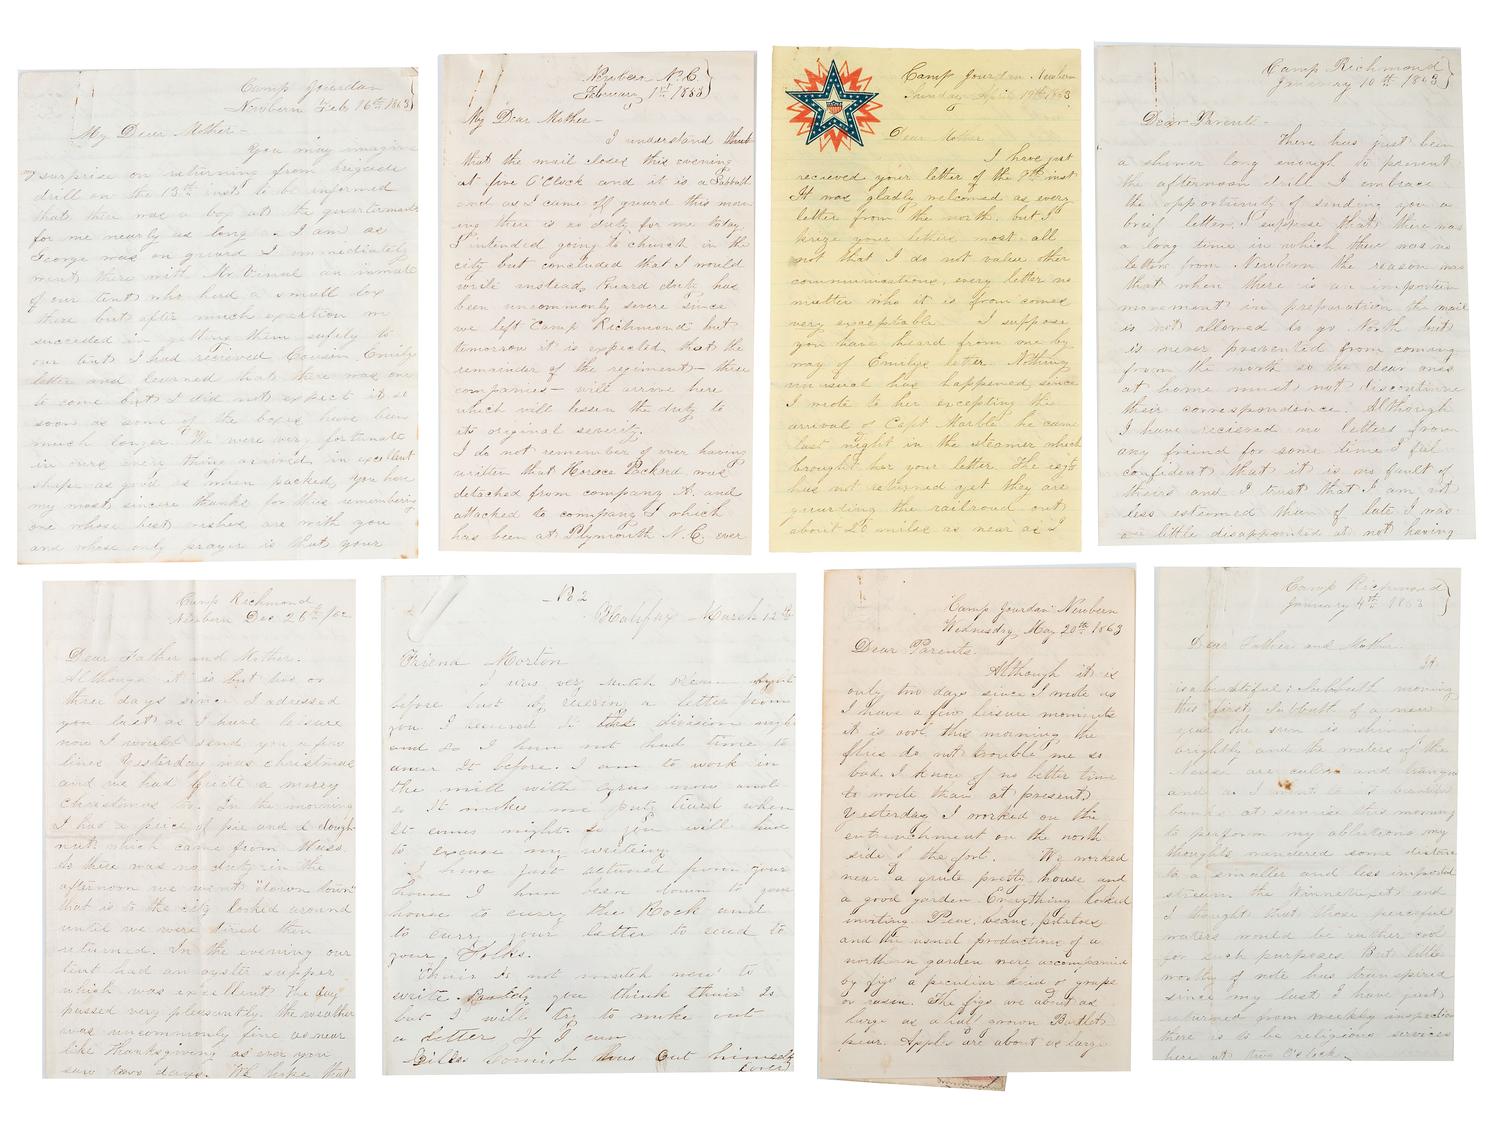 Camp Jourdan
Newbern Feb 16th 1863
My Dear Mother-
You may imagine
my surprise on returning from brigade
drill on the 13th inst to be informed
that there was a box at the quartermasters
for me nearly as long as I am as
George was on guard I immediately
went there with Mr. Vinal an inmate
of our tent who had a small box
there but after much exertion we
succeded in getting them safely to
our tent I had recieved Cousin Emilys
letter and learned that there was one
to come but I did not expect it so
soon as some of the boxes have been
much longer. We were very fortunate
in ours every thing arrived in excellent
shape as good as when packed, you have
my most sincere thanks for thus remembering
one whose best wishes are with you
and whose only prayer is that your
Newbern N.C.
February 1st 1863
My Dear Mother-
I understand
that the mail closes this evening
at five O'Clock and it is a Sabbath
and as I came off guard this morn
ing there is no duty for me today.
I intended going to church in the
city but concluded that I would
write instead, Guard duty has
been uncommonly severe since
we left Camp Richmond but
tomorrow it is expected that the
remainder of the regiment- three
companies- will arrive here
which will lessen the duty to
its original severity.
I do not remember of ever having
written that Horace Packard was
detached from company A. and
attached to company I which
has been at Plymouth N.C. ever
Camp Jourdan Newbern
1863
Dear Mother
I have just
recieved your letter of the 8th inst
It was gladly welcomed as every
letter from the north. but I
prize your letters most all
not that I do not value other
communications, every letter no
matter who it is from comes
very exceptable I suppose
you have heard from me by
way of Emilys letter. Nothing
unusual has happened since
I wrote to her excepting the
arrival of Capt Marble he came
last night in the steamer which
brought her your letter. The
has not returned yet they are
guarding the railroad out
about 26 miles as near as I
Camp Richmond
January 10th 1863
Dear Parents-
There has just been
a shower long enough to prevent
the afternoon drill I embrace
the opportunity of sending you a
brief letter. I suppose that there was
a long time in which there was no
letter from Newbern the reason was
that when there is an important
movement in preparation the mail
is not allowed to go North but
is never prevented from coming
from the north so the dear ones
at home must not discontinue
their correspondence. Although
I have recieved no letters from
any friend for some time I feel
confident that it is no fault of
theirs and I trust that I am not
less esteemed than of late I was
a little disappointed at not having
Camp Richmond
Newbern Dec 26th /62
Dear Father and Mother.
Although it is but two or
three days since I adressed
you last as I have leisure
now I would send you a few
lines Yesterday was christmas
and we had quite a merry
christmas too. In the morning
I had a peice of pie and a dough-
nut which came from Mass
As there was no duty in the
afternoon we went "down town"
that is to the city looked around
until we were tired then
returned. In the evening our
tent had an oyster supper
which was excellent. The day
passed very pleasantly. the weather
was uncommonly fine as near
like Thanksgiving as ever you
saw two days. We hope that
No 2
Halifax March 12th
Friend Morton
I was very much
before last by a letter from
you I recieved it this division night
and so I have not had time to
anser it before. I am to work in
the mill with Cyrus now and
so It makes me puty tierd when
It comes night. so you will have
to excuse my writeing
I have just returned from your
house I have ben down to your
house to carry the Book and
to carry your letter to send to
your Folks.
thair Is not mutch news to
write. you think thair Is
but I will try to make out
a letter If I can
has Cut himself
over
Camp Jourdan Newbern
Wednesday May 20th 1863
Dear Parents
Although it is
only two days since I wrote as
I have a few leisure moments
it is cool this morning the
flies do not trouble me so
bad. I know of no better time
to write than at present
Yesterday I worked on the
entrenchment on the north
side of the fort. We worked
near a quite pretty house and
a good garden. Everything looked
inviting Peas, beans, potatoes
and the usual productions of a
northern garden were accompanied
by figs a peculiar kind of grape
or raisin. The figs are about as
large as a half grown Bartlet
pear. Apples are about as large
Camp Richmond
January 4th 1863
Dear Father and Mother.
It
is a beautiful Sabbath morning
this first Sabbath of a new
year the sun is shining
brightly and the waters of the
Neuse are calm and tranquil
and as I went to it beautiful
banks at sunrise this morning
to perform my ablutions my
thoughts wandered some distance
to a smaller and less important
stream the Winnetuxet and
I thought that those peaceful
waters would be rather cool
for such purposes But little
worthy of note has transpired
since my last I have just
returned from weekly inspection
there is to be religious services
here at two O'clock